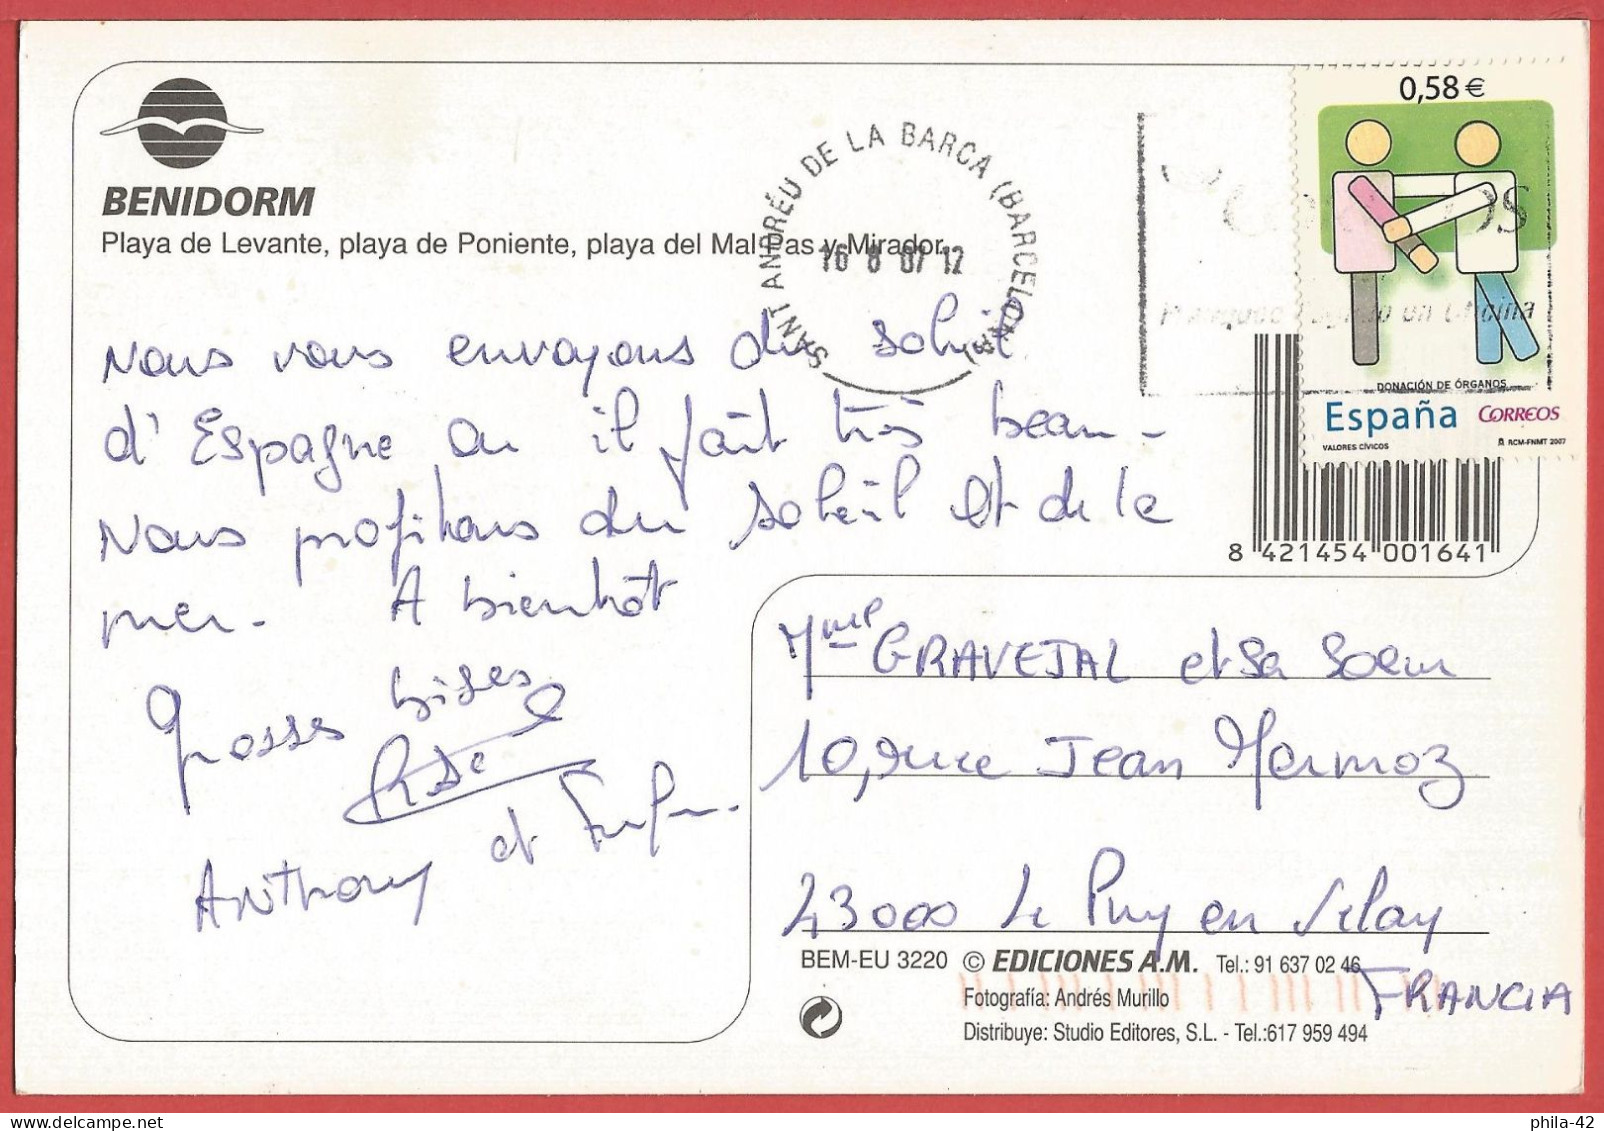 BENIDORM
Playa de Levante, playa de Poniente, playa del Mal Pas y Mirador.
SANT ANDRÉU DE LA BARCA (BARCELONA)
16 8 07 12
0,58 €
DONACIÓN DE ÓRGANOS
España CORREOS
VALORES CÍVICOS RCM-FNMT 2007
8 421454 001641
Nous vous envoyons du soleil
d'Espagne ou il fait très beau -
Nous profitons du soleil et de la
mer. A bientôt
Grosses bises
Anthony et
Mme GRAVEJAL et sa soeur
10, rue Jean Mermoz
43000 Le Puy en Velay
FRANCIA
BEM-EU 3220 © EDICIONES A.M. Tel.: 91 637 02 46
Fotografía: Andrés Murillo
Distribuye: Studio Editores, S.L. - Tel.:617 959 494
phila-42